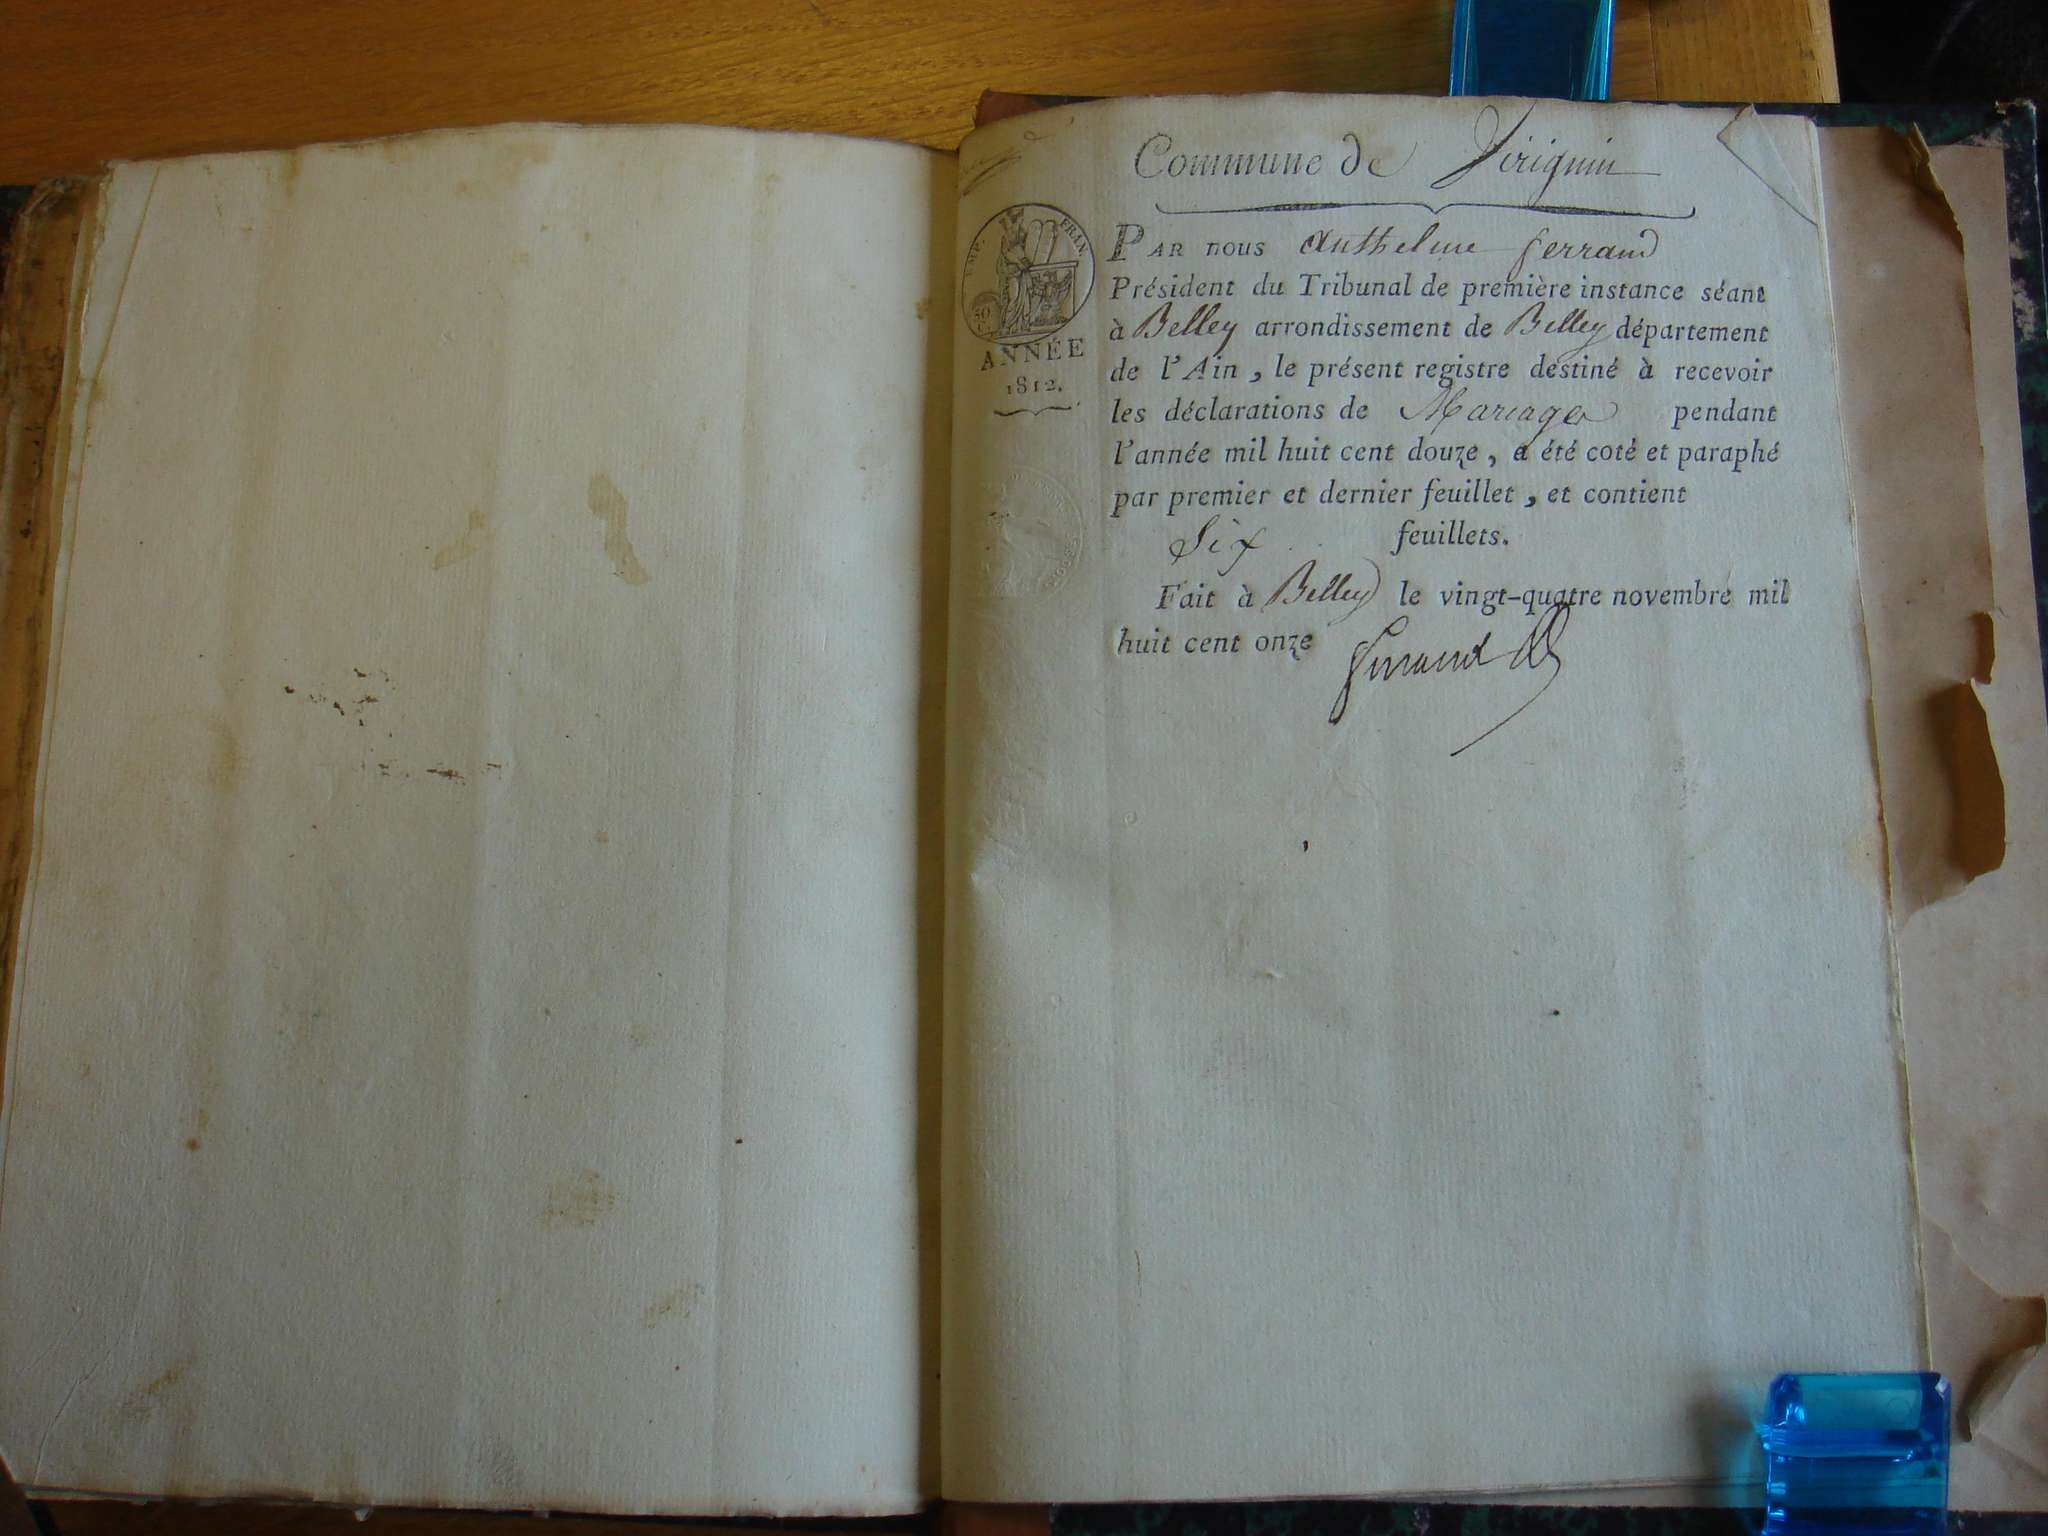 Commune de Virignin
EMP. FRAN.
50
C.
ANNÉE
1812.
PAR nous Anthelme ferrand
Président du Tribunal de première instance séant
à Belley arrondissement de Belley département
de l'Ain, le présent registre destiné à recevoir
les déclarations de Mariages pendant
l'année mil huit cent douze, a été coté et paraphé
par premier et dernier feuillet, et contient
Six feuillets.
Fait à Belley le vingt-quatre novembre mil
huit cent onze
ferrand